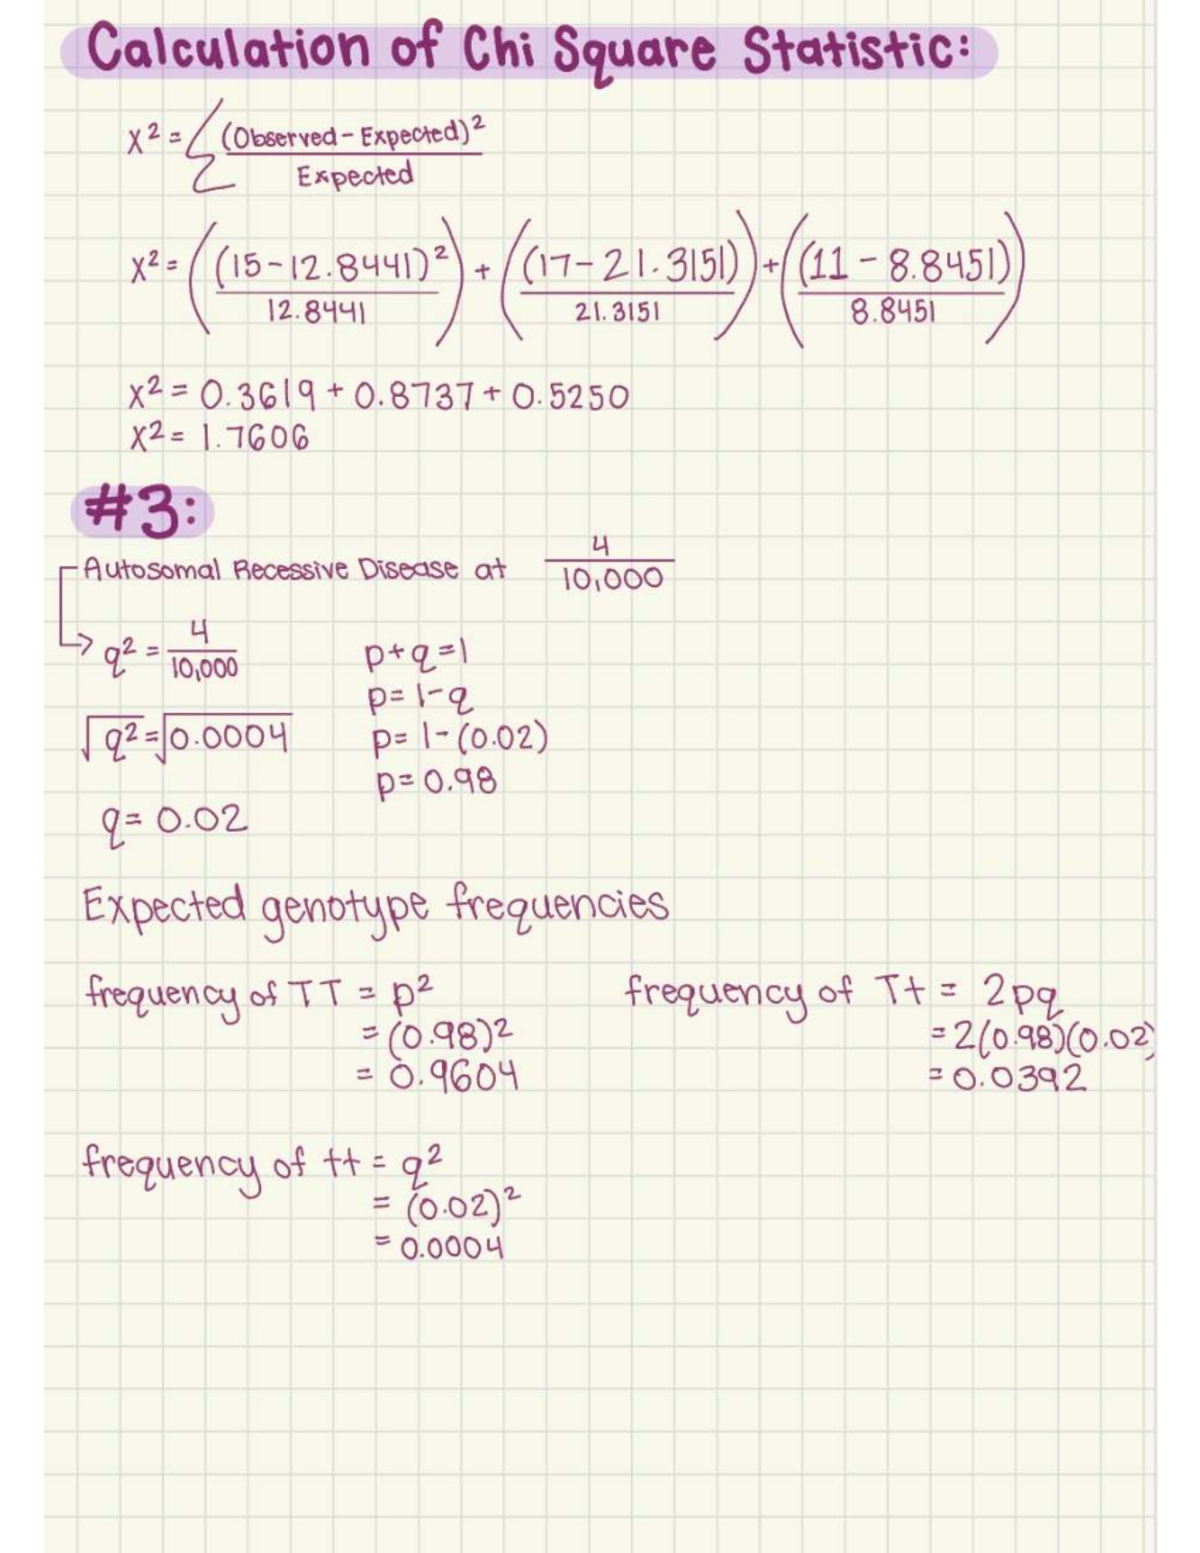 Calculation of Chi Square Statistic:
X² = Σ (Observed - Expected)² / Expected
X² = ((15 - 12.8441)² / 12.8441) + ((17 - 21.3151) / 21.3151) + ((11 - 8.8451) / 8.8451)
X² = 0.3619 + 0.8737 + 0.5250
X² = 1.7606
#3:
Autosomal Recessive Disease at 4 / 10,000
→ q² = 4 / 10,000
√q² = √0.0004
q = 0.02
p + q = 1
p = 1 - q
p = 1 - (0.02)
p = 0.98
Expected genotype frequencies
frequency of TT = p²
= (0.98)²
= 0.9604
frequency of Tt = 2pq
= 2(0.98)(0.02)
= 0.0392
frequency of tt = q²
= (0.02)²
= 0.0004